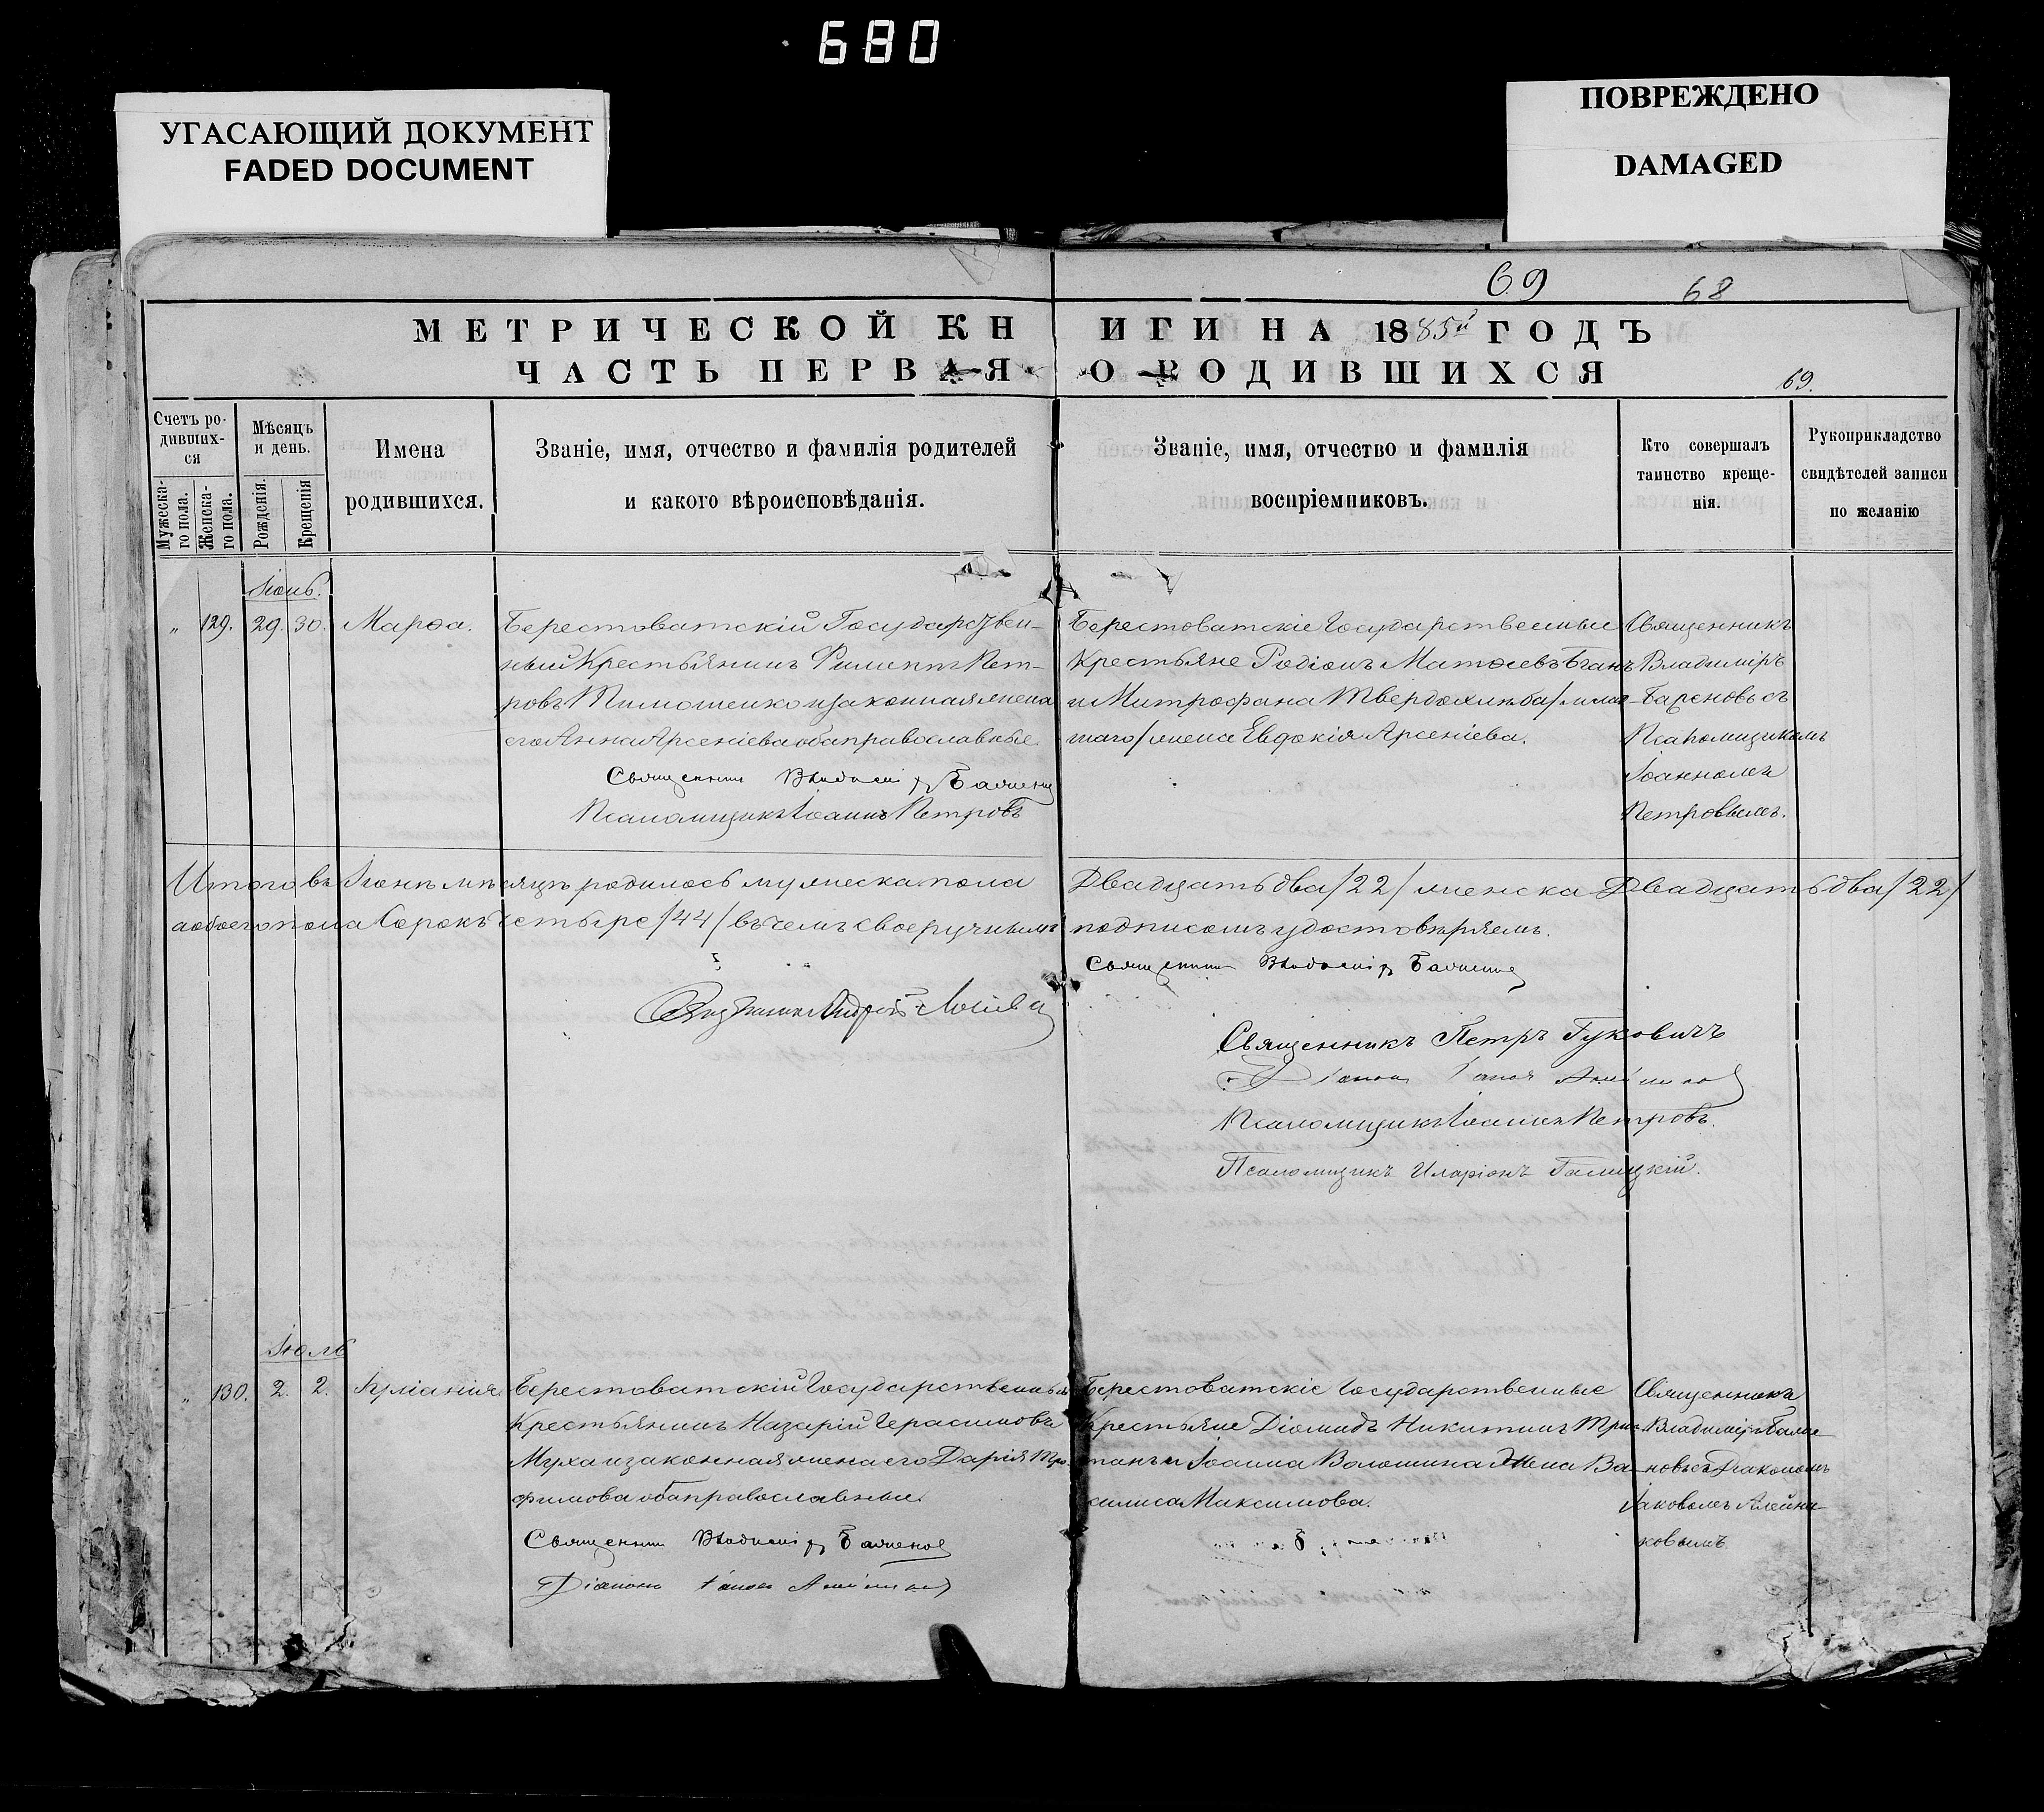 680
УГАСАЮЩИЙ ДОКУМЕНТ
FADED DOCUMENT
ПОВРЕЖДЕНО
DAMAGED
69
68
МЕТРИЧЕСКОЙ КНИГИ НА 1885й ГОДЪ
ЧАСТЬ ПЕРВАЯ О РОДИВШИХСЯ
69.
Счетъ ро-
дивших-
ся
Мужеска-
го пола.
Женска-
го пола.
Мѣсяцъ
и день.
Рожденія.
Крещенія
Имена
родившихся.
Званіе, имя, отчество и фамилія родителей
и какого вѣроисповѣданія.
Званіе, имя, отчество и фамилія
воспріемниковъ.
Кто совершалъ
таинство креще-
нія.
Рукоприкладство
свидѣтелей записи
по желанію
Іюнь.
" 129. 29. 30. Марѳа.
Берестоватскій Государствен-
ный Крестьянинъ Филиппъ Пет-
ровъ Тимошенко и законная жена
его Анна Арсеніева оба православные.
Священник Владимір Баженов
Псаломщикъ Іоаннъ Петровъ
Берестоватскіе Государственные
Крестьяне Родіонъ Матѳеевъ
и Митрофана Твердохлѣба
жена Евдокія Арсеніева.
Священникъ
Владиміръ
Баженовъ съ
Псаломщикомъ
Іоанномъ
Петровымъ.
Итого въ Іюнѣ мѣсяцѣ родилось мужеска пола Двадцать два /22/ женска Двадцать два /22/
а обоего пола Сорокъ четыре /44/ въ чемъ своеручнымъ подписомъ удостовѣряемъ.
Священник Владимір Баженов
Священникъ Петръ Гуковичъ
Псаломщикъ Іоаннъ Петровъ.
Псаломщикъ Иларіонъ Галицкій.
Іюль
" 130. 2. 2. Іуліанія
Берестоватскій Государственный
Крестьянинъ Назарій Герасимовъ
Муха и законная жена его Дарія Тро-
фимова оба православные.
Священник Владимір Баженов
Діаконъ Іаков
Берестоватскіе Государственные
Крестьяне Діомидъ Никитинъ
и Іоанна Волошина Жена Ва-
силиса Максимова.
Священникъ
Владиміръ Баже-
новъ съ Діакономъ
Іаковомъ Алейни-
ковымъ